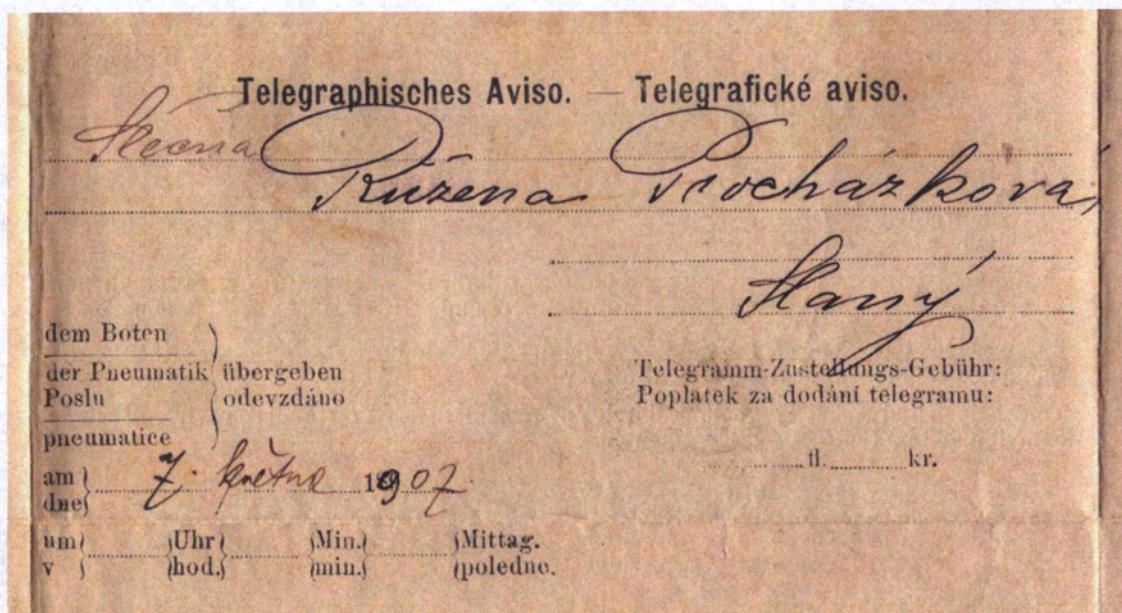 Telegraphisches Aviso. — Telegrafické aviso.
Slečna
Růžena Procházková,
Slaný
dem Boten
der Pneumatik übergeben
Poslu odevzdáno
pneumatice
Telegramm-Zustellungs-Gebühr:
Poplatek za dodání telegramu:
fl. kr.
am
dne 7. května 1907.
um Uhr Min. Mittag.
v hod. min. poledne.